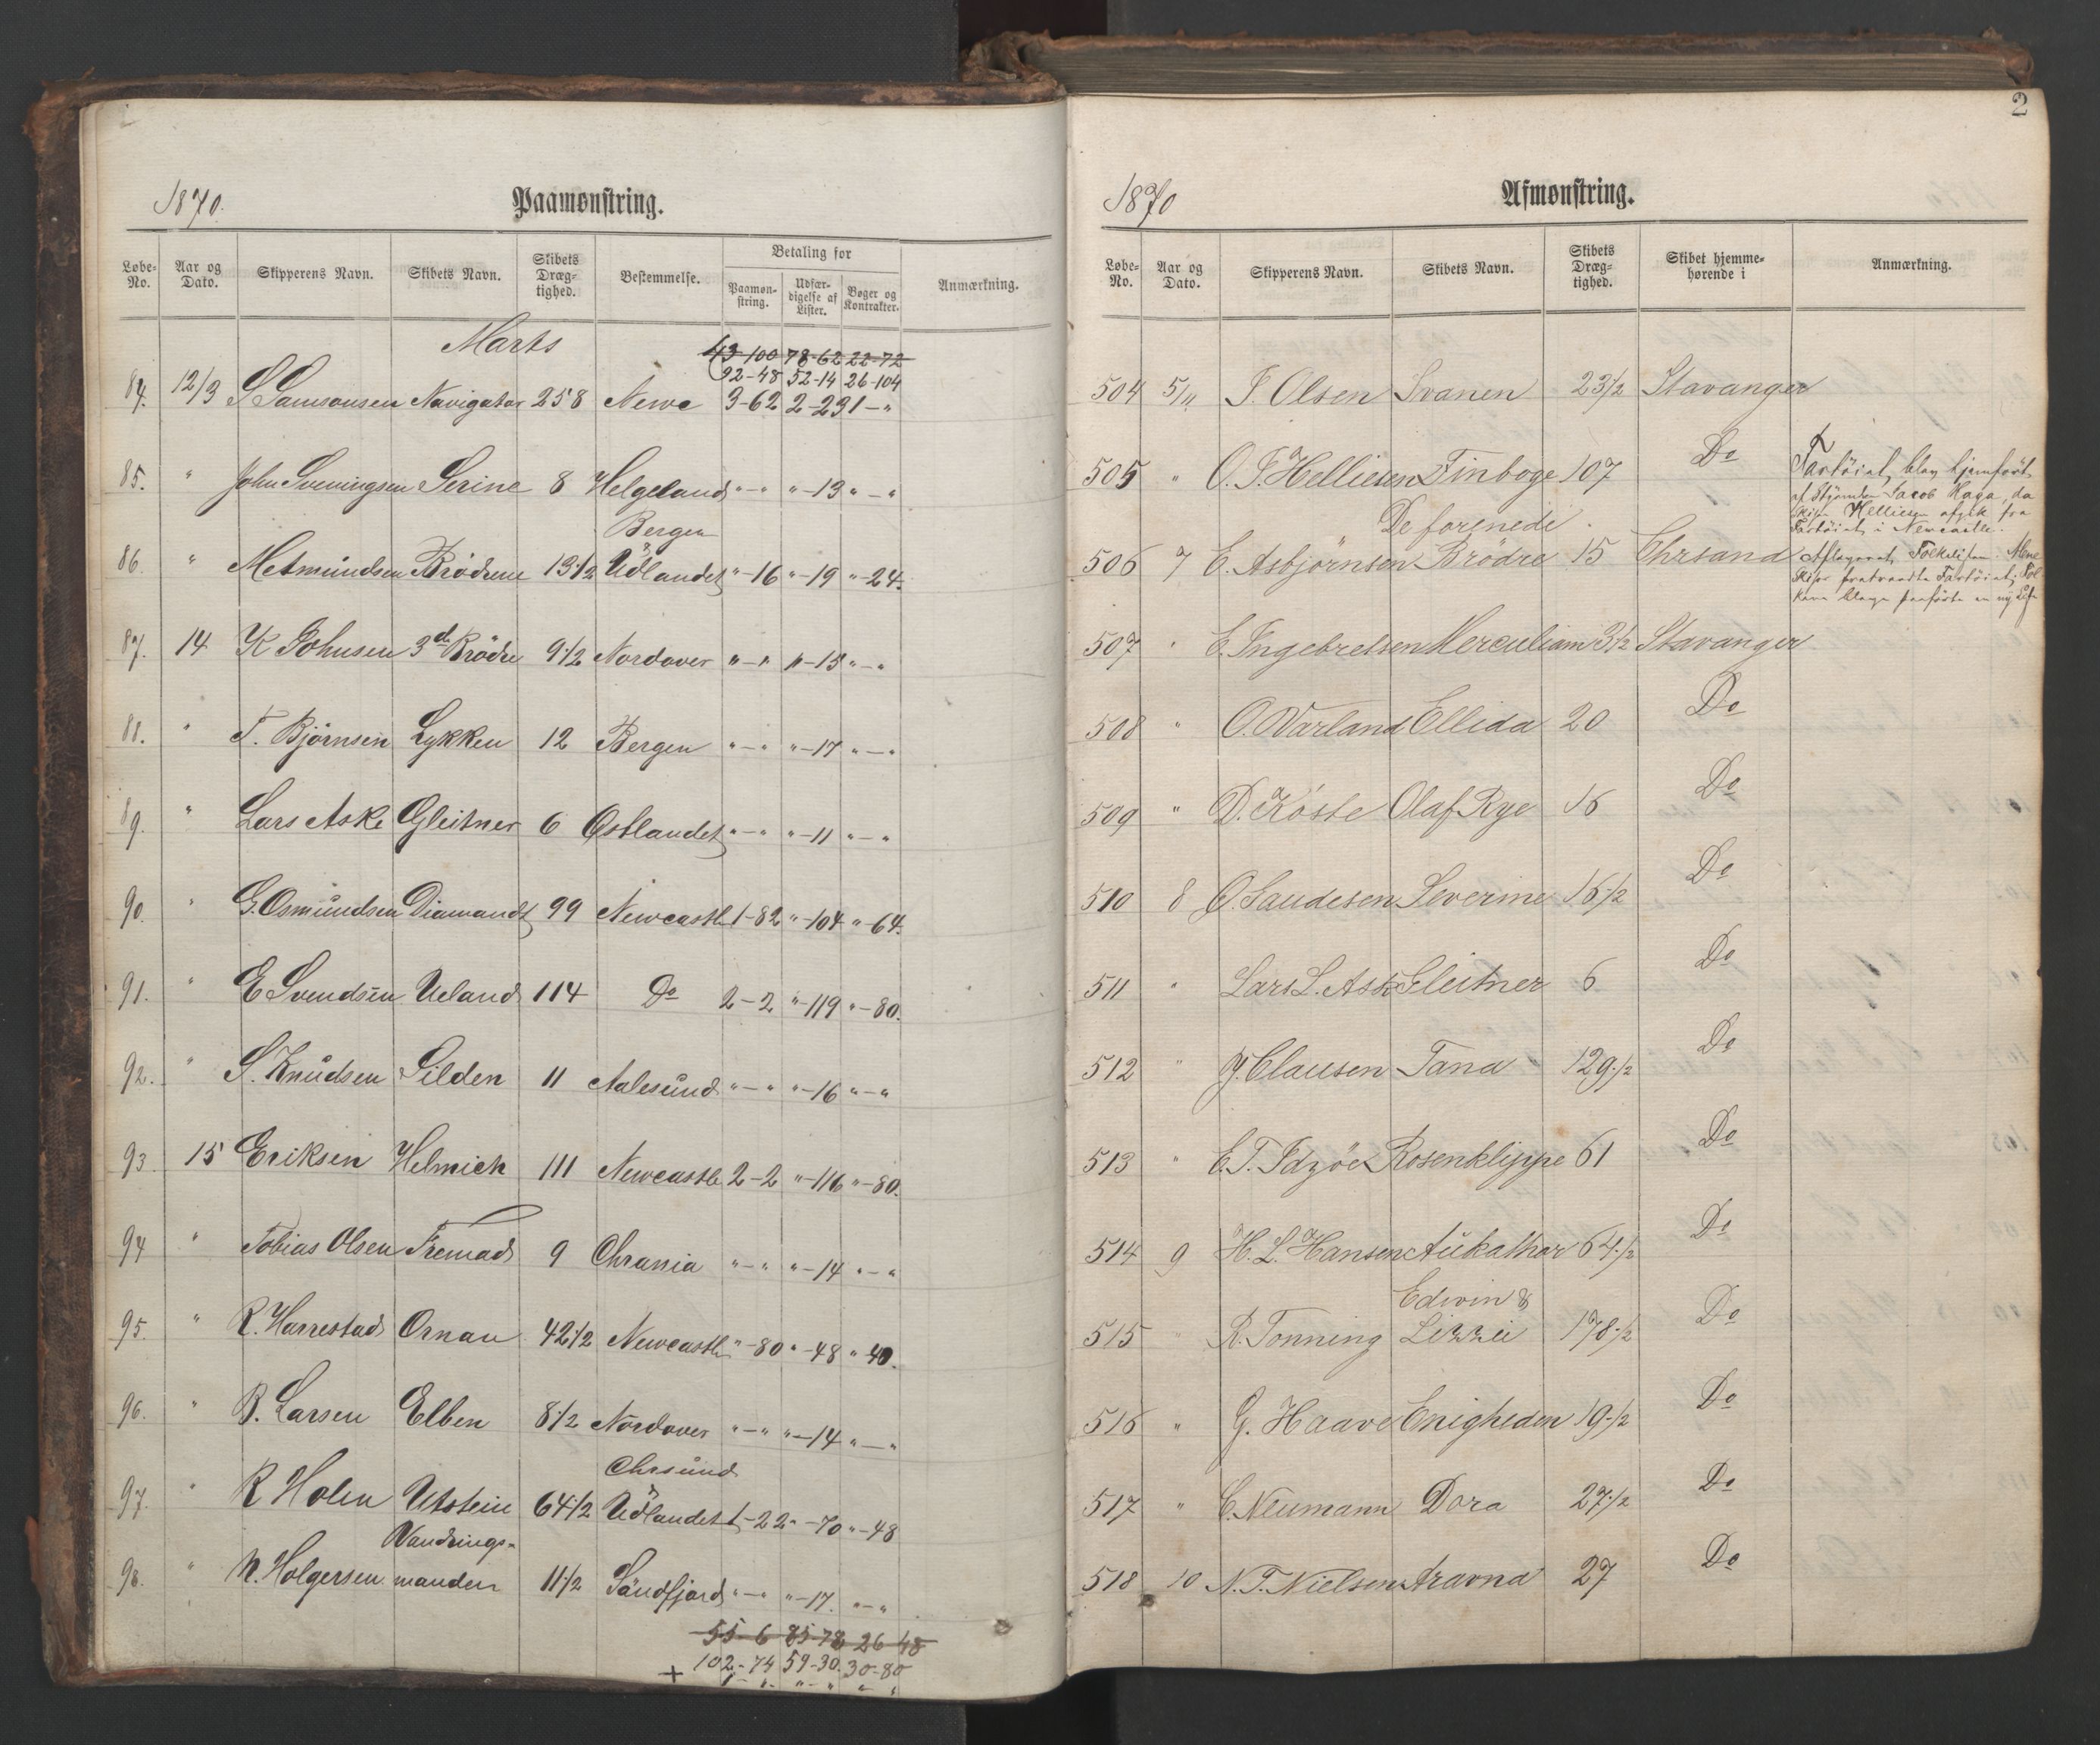 1870.
Paamønstring.
Løbe-No. Aar og Dato. Skipperens Navn. Skibets Navn. Skibets Dræg-tighed. Bestemmelse. Betaling for Paamøn-string. Udfær-digelse af Lister. Bøger og Kontrakter. Anmærkning.
Marts
43-100 78-62 22-72
92-48 52-14 26-104
84. 12/3 S Samsonsen Navigator 258 Newc 3-62 2-23 1-"
85. " John Sveningsen Serine 8 Helgeland "-" "-13 "-"
Bergen
86. " M Amundsen Brødrene 13 1/2 & Udlandet "-16 "-19 "-24.
87. 14 K Johnsen 3de Brødre 9 1/2 Nordover "-" "-15 "-"
88. " T. Bjørnsen Lykken 12 Bergen "-" "-17 "-"
89. " Lars Aske Gleitner 6 Østlandet "-" "-11 "-"
90. " G. Osmundsen Diamandt 99 Newcastle 1-82 "-104 "-64.
91. " E Svendsen Ueland 114 Do 2-2 "-119 "-80.
92. " S. Knudsen Silden 11 Aalesund "-" "-16 "-"
93. 15 Eriksen Helmich 111 Newcastle 2-2 "-116 "-80.
94 " Tobias Olsen Fremad 9 Chrania "-" "-14 "-"
95. " R. Harrestad Ornan 42 1/2 Newcastle "-80 "-48 "-40.
96. " B. Larsen Elben 8 1/2 Nordover "-" "-14 "-"
Chrsund
97. " R Holen Utstein 64 1/2 & Udlandet 1-22 "-70 "-48
Vandrings-
98. " N. Holgersen manden 11 1/2 Søndfjord "-" "-17. "-"
55-6 85-78 26 48
102-74 59-30. 30-80
+ 1-" "-" "-"
2
1870
Afmønstring.
Løbe-No. Aar og Dato. Skipperens Navn. Skibets Navn. Skibets Dræg-tighed. Skibet hjemme-hørende i Anmærkning.
504 5/11 J. Olsen Svanen 23 1/2 Stavanger
505 " O. T. Helliesen Finboge 107 Do Fartöiet blev hjemfört
af Styrmden Jacob Haga, da
Skipr Helliesen afgik fra
Fartöiet i Newcastle.
De forenede
506 7 E. Asbjørnsen Brödre 15 Chrsand Aflagret Folkelisten. Alene
Skipr fratraadte Fartöiet,
507 " E. Ingebretsen Herculiam 3 1/2 Stavanger
508 " O. Varland Ellida 20 Do
509 " D. Röste Olaf Rye 16 Do
510 8 O. Saudesen Severine 16 1/2 Do
511 " Lars L. Ask Gleitner 6 Do
512 " J. Clausen Tana 129 1/2 Do
513 " E. T. Idzöe Rosenklippe 61 Do
514 9 H. L. Hansen Aukathor 64 1/2 Do
Edwin &
515 " R. Tonning Lizzie 178 1/2 Do
516 " G. Haave Enigheden 19 1/2 Do
517 " C. Neumann Dora 27 1/2 Do
518 10 N. T. Nielsen Aravna 27 Do